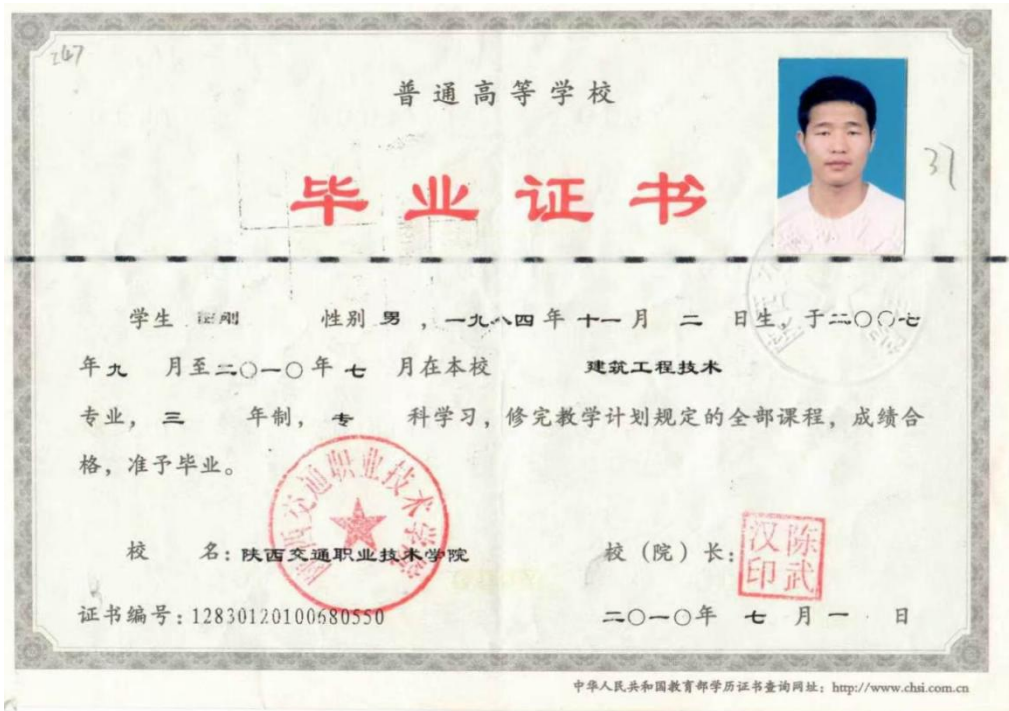 247
普通高等学校
毕业证书
37
学生 刚 性别 男 ，一九八四 年 十一 月 二 日生，于二〇〇七
年 九 月至二〇一〇年 七 月在本校 建筑工程技术
专业， 三 年制， 专 科学习，修完教学计划规定的全部课程，成绩合
格，准予毕业。
陕西交通职业技术学院
校 名：陕西交通职业技术学院 校（院）长：
陈武汉印
证书编号：12830120100680550 二〇一〇年 七 月 一 日
中华人民共和国教育部学历证书查询网址：http://www.chsi.com.cn